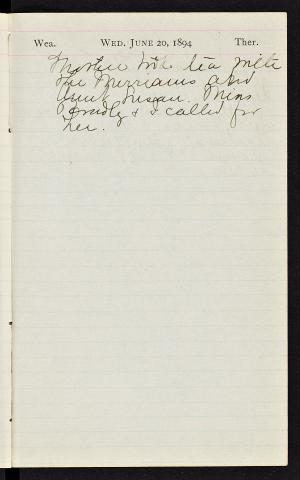 Wea. WED. JUNE 20, 1894 Ther.
Mother took tea with
the Merriams and
Aunt Susan. Miss
Bradley & I called for
her.